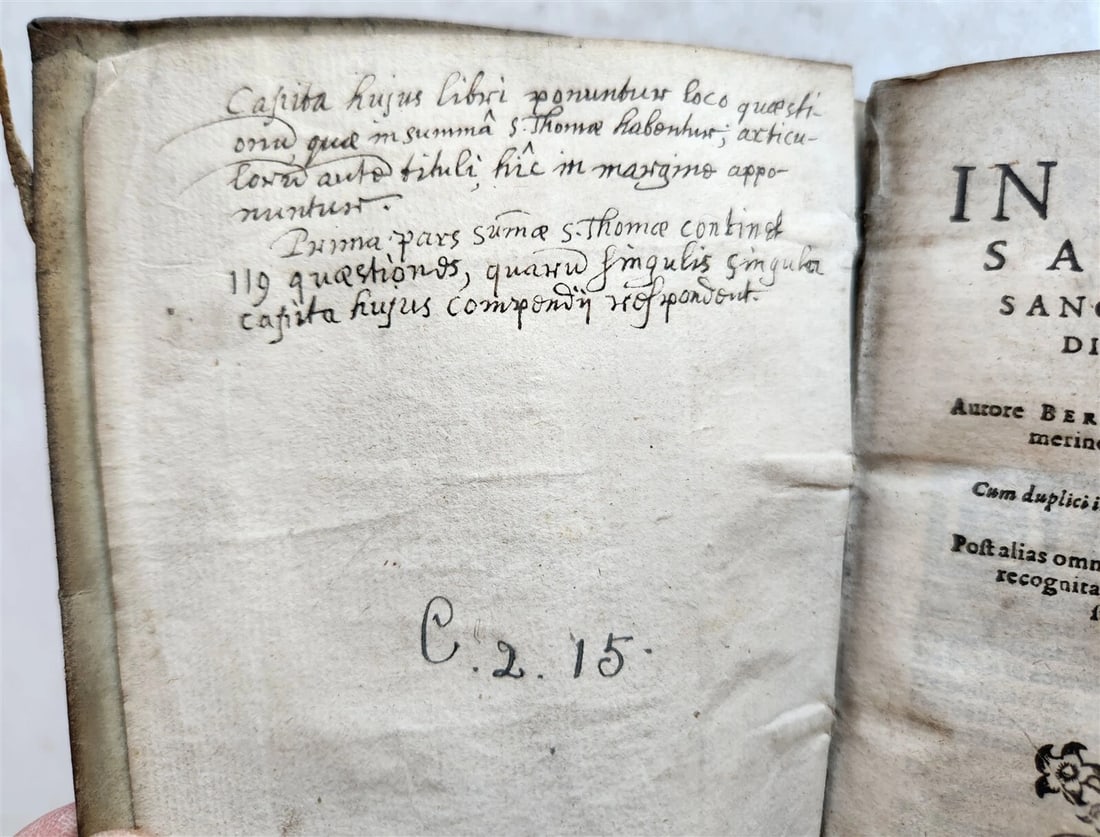 Capita hujus libri ponuntur loco quæsti-
onū, quæ in summâ S. Thomæ habentur; articu-
lorū autē tituli, hîc in margine appo-
nuntur.
Prima pars sum̄æ S. Thomæ continet
119 quæstiones, quarū singulis singula
capita hujus compendij respondent.
C. 2. 15.
IN
SA
SANC
DI
Autore BER
merino
Cum duplici i
Post alias omn
recognita